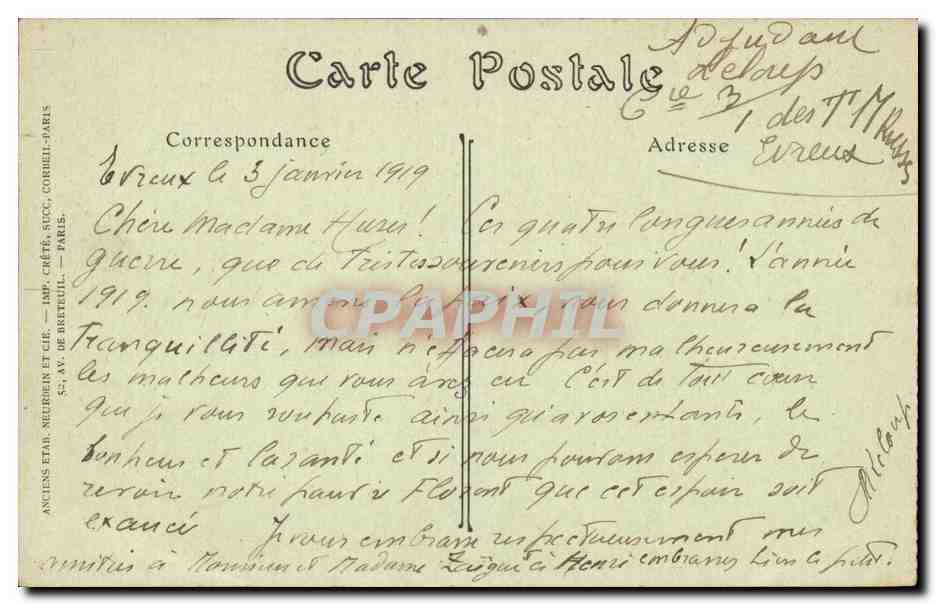 Carte Postale
Adjudant
Leloup
Cie 3/1 des TM Russes
Evreux
Correspondance
Adresse
Evreux le 3 janvier 1919
Chère Madame Hures! Ces quatre longues années de
guerre, que de tristes souvenirs pour vous! L'année
1919 nous amène la paix, vous donnera la
tranquillité, mais n'effacera pas malheureusement
les malheurs que vous avez eu C'est de tout cœur
que je vous souhaite ainsi qu'a vos enfants, le
bonheur et la santé et si nous pouvons esperer de
revoir notre pauvre Florent que cet espoir soit
exaucé Je vous embrasse respectueusement mes
amitiés à Monsieur et Madame à Henri embrassez le petit.
Leloup
ANCIENS ETAB. NEURDEIN ET CIE. — IMP. CRÉTÉ, SUCC, CORBEIL-PARIS
52, AV. DE BRETEUIL. — PARIS.
CPAPHIL